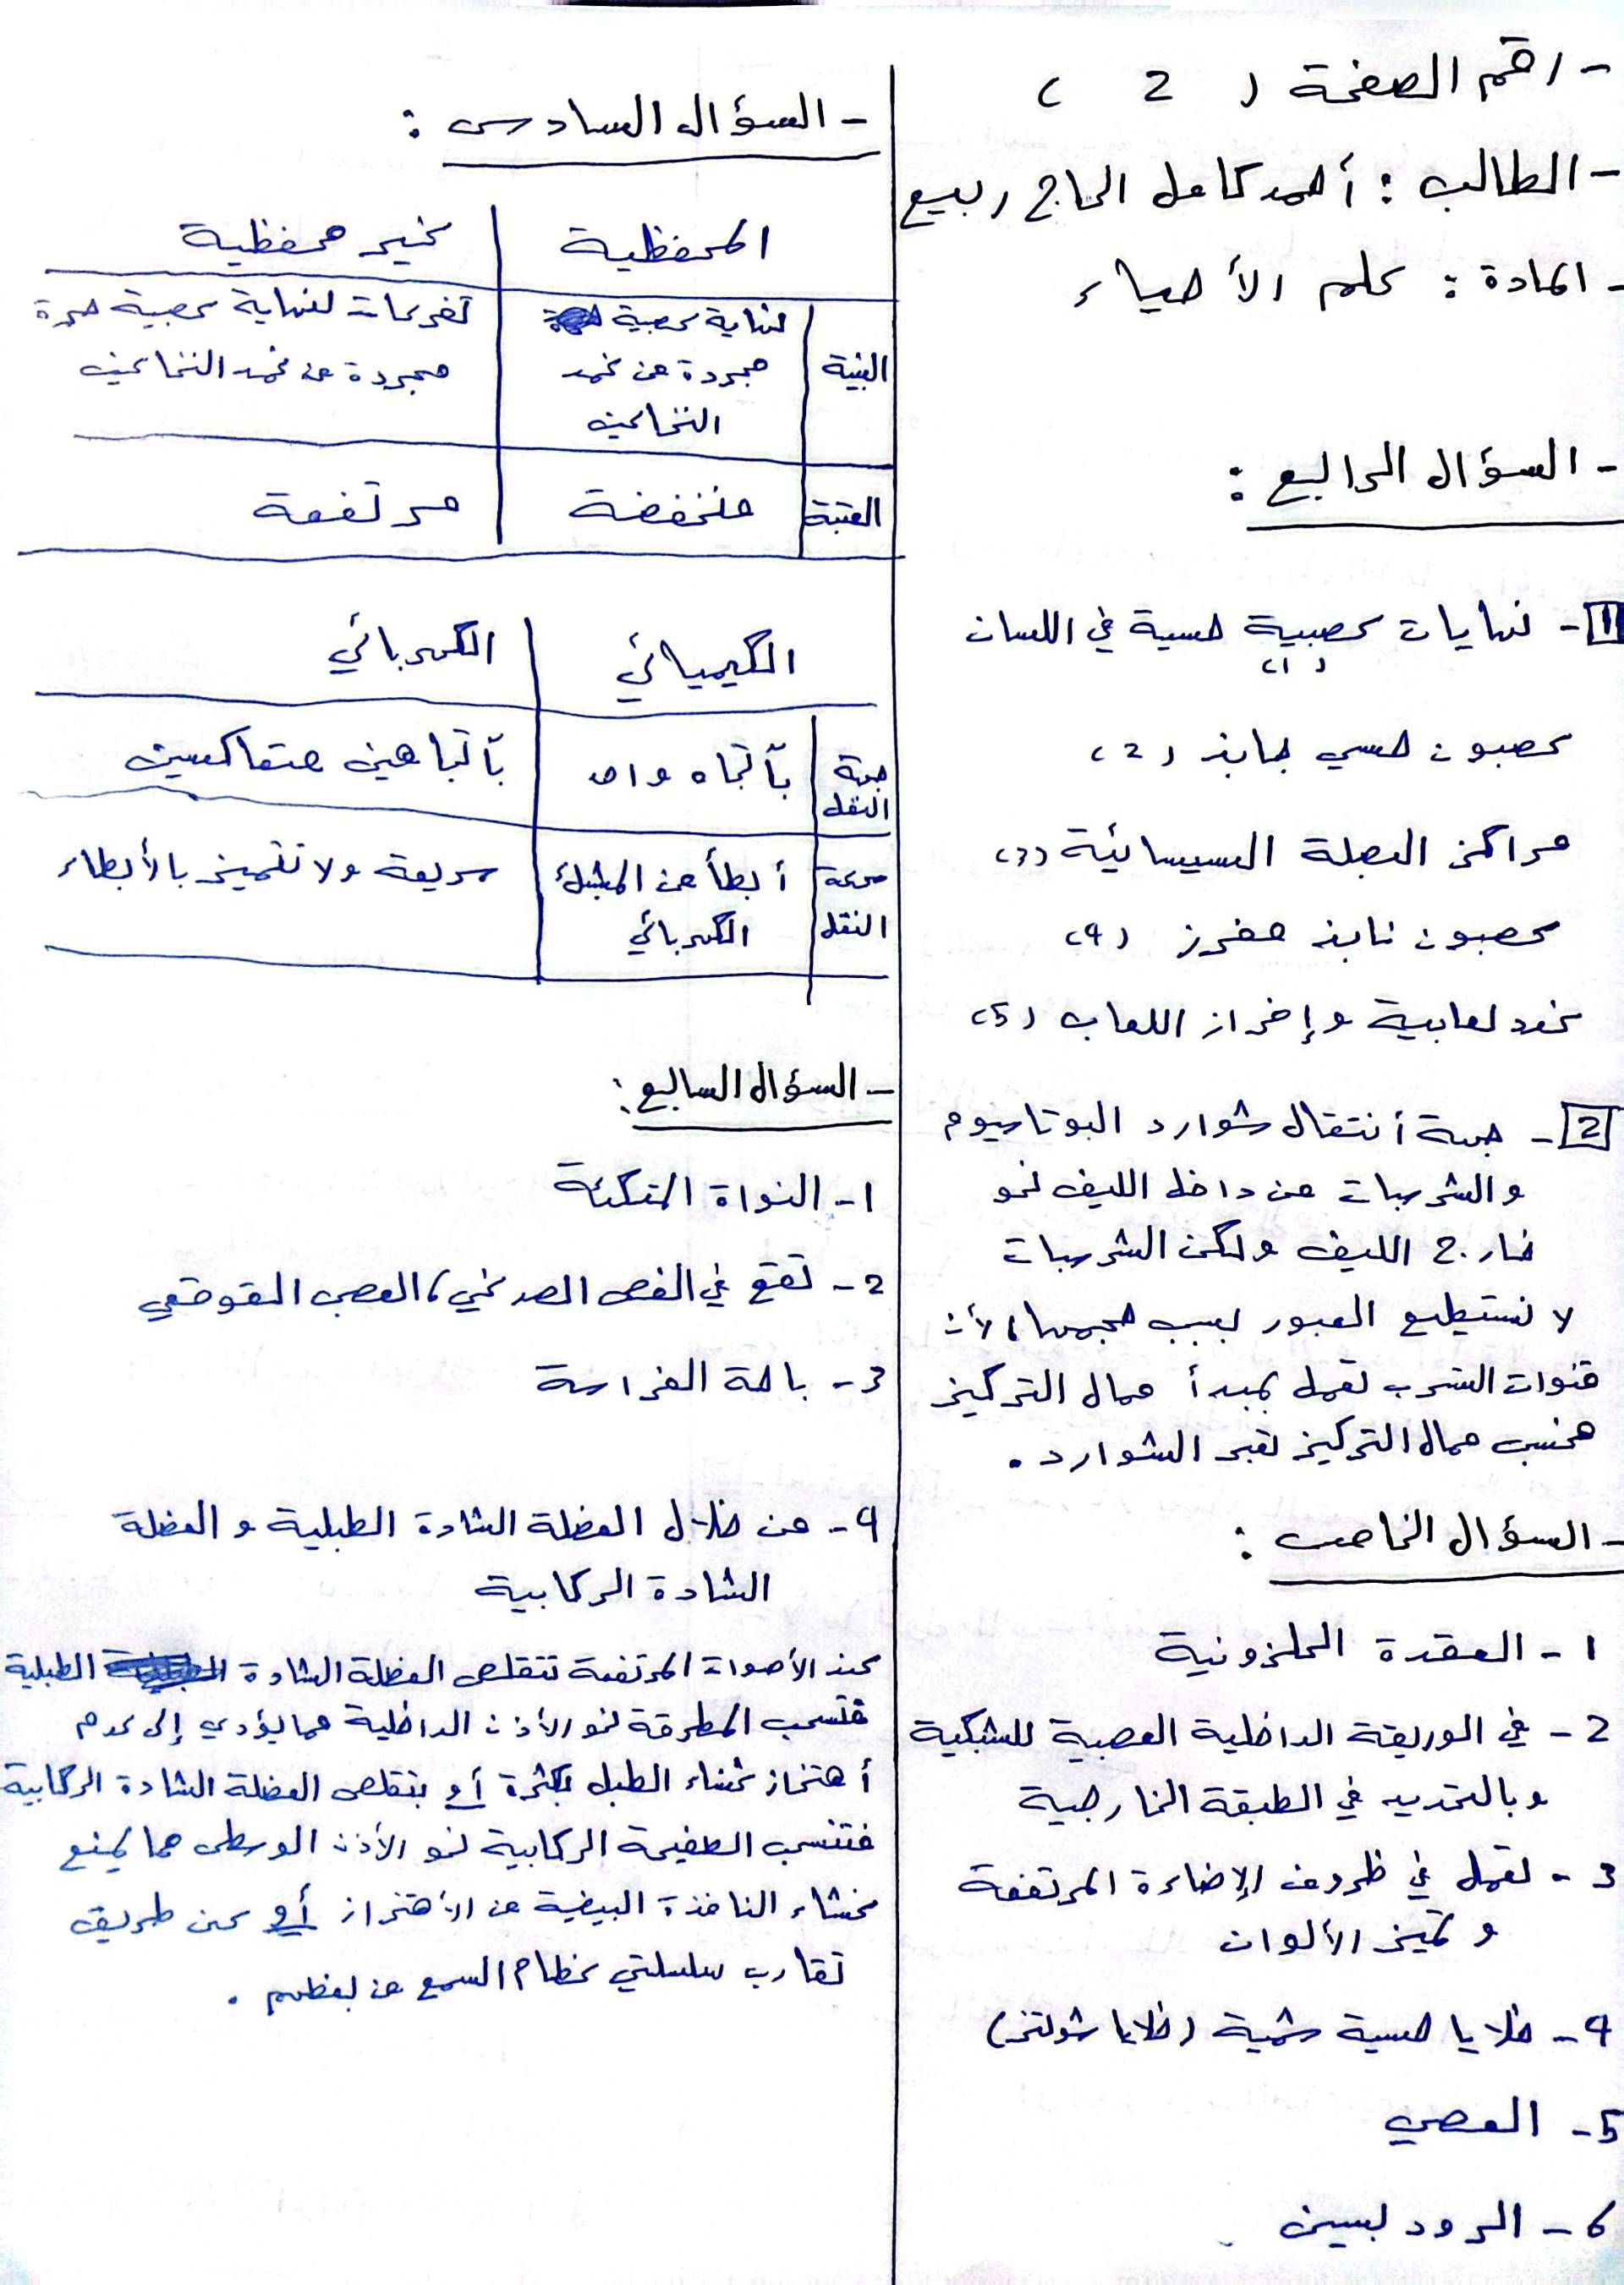 - رقم الصفحة ( 2 )
- الطالب : أحمد كامل الحاج ربيع
- المادة : علم الأحياء
- السؤال الرابع :
1 - نهايات عصبية حسية في اللسان
(1)
عصبون حسي جابذ (2)
مراكز البصلة السيسائية (3)
عصبون نابذ مفرز (4)
غدد لعابية وإفراز اللعاب (5)
2 - جهة أنتقال شوارد البوتاسيوم
والشرسبات من داخل الليف نحو
خارج الليف ولكن الشرسبات
لا تستطيع العبور بسبب حجمها، لأن
قنوات التسرب تعمل بمبدأ ممال التركيز
فحسب ممال التركيز تعبر الشوارد .
- السؤال الخامس :
1 - العقدة الحلزونية
2 - في الوريقة الداخلية العصبية للشبكية
وبالتحديد في الطبقة الخارجية
3 - تعمل في ظروف الإضاءة المرتفعة
و تميز الألوان
4 - خلايا حسية شمية (خلايا شولتز)
5 - العصي
6 - الرودبسين
- السؤال السادس :
المحفظية | غير محفظية
البنية | نهاية عصبية مجردة من غمد النخاعين | تفرعات لنهاية عصبية حرة مجردة من غمد النخاعين
العتبة | منخفضة | مرتفعة
الكيميائي | الكهربائي
جهة النقل | بأتجاه واحد | بأتجاهين متعاكسين
سرعة النقل | أبطأ من المشبك الكهربائي | سريعة ولا تتميز بالأبطاء
- السؤال السابع :
1 - النواة المتكئة
2 - تقع في الفص الصدغي، العصب القوقعي
3 - باحة الفراسة
4 - من خلال العضلة الشادة الطبلية و العضلة
الشادة الركابية
عند الأصوات المرتفعة تتقلص العضلة الشادة الطبلية
فتسحب المطرقة نحو الأذن الداخلية مما يؤدي إلى عدم
أهتزاز غشاء الطبل بكثرة أو بتقلص العضلة الشادة الركابية
فتنسحب الصفيحة الركابية نحو الأذن الوسطى مما يمنع
غشاء النافذة البيضية من الأهتزاز أو عن طريق
تقارب سلسلتي عظام السمع من بعضهم .